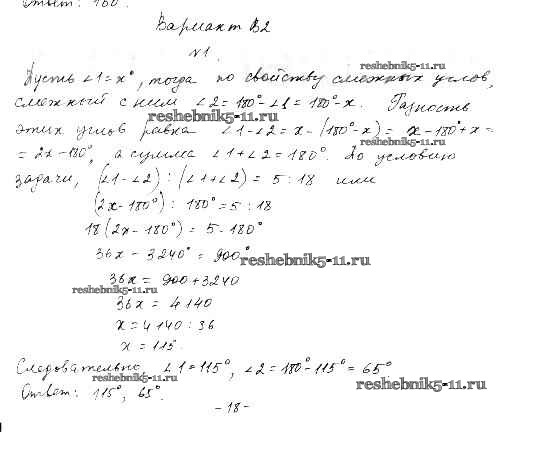 Ответ: 160°.
Вариант В2
№1.
reshebnik5-11.ru
Пусть ∠1=x°, тогда по свойству смежных углов,
смежный с ним ∠2=180°-∠1=180°-x. Разность
reshebnik5-11.ru
этих углов равна ∠1-∠2=x-(180°-x)=x-180°+x=
reshebnik5-11.ru
=2x-180°, а сумма ∠1+∠2=180°. По условию
задачи, (∠1-∠2):(∠1+∠2)=5:18 или
(2x-180°):180°=5:18
18(2x-180°)=5·180°
36x-3240°=900°
reshebnik5-11.ru
36x=900+3240
reshebnik5-11.ru
36x=4140
x=4140:36
x=115.
Следовательно, ∠1=115°, ∠2=180°-115°=65°
reshebnik5-11.ru
reshebnik5-11.ru
Ответ: 115°; 65°.
-18-